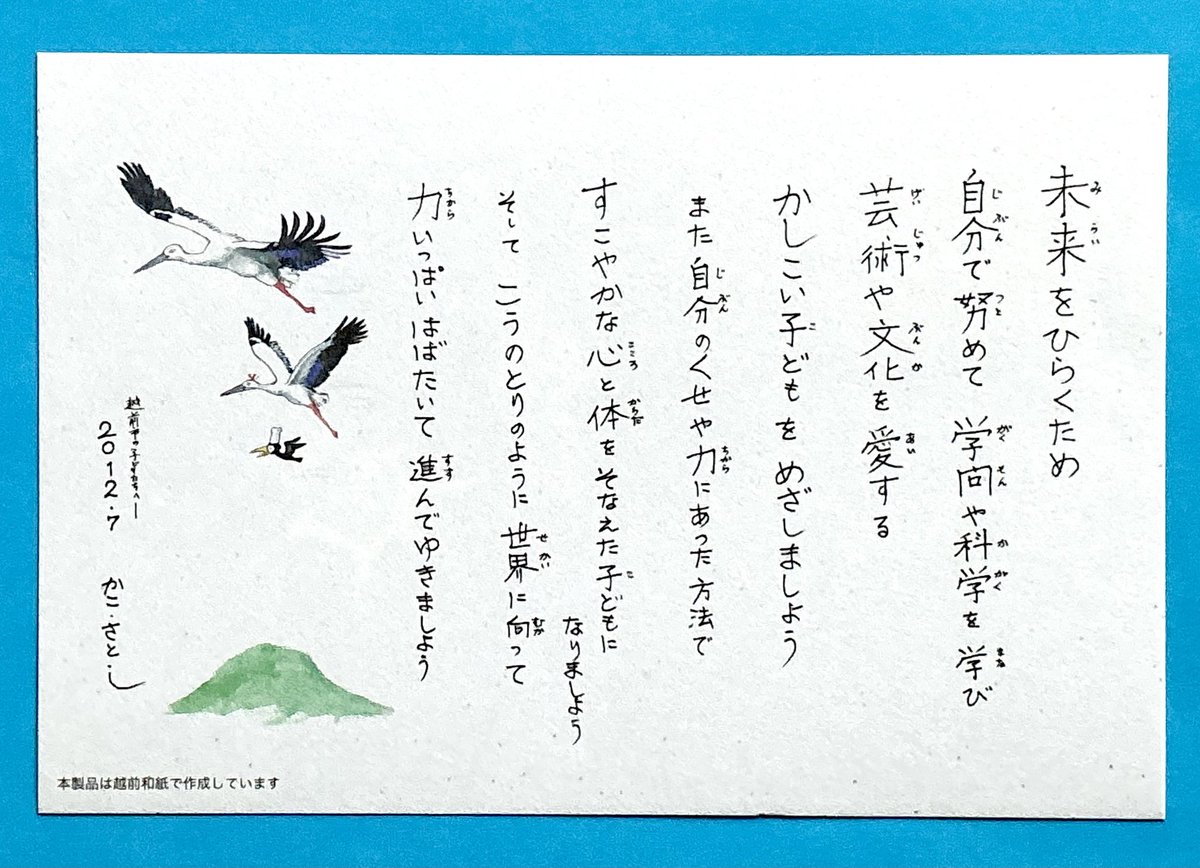 未来をひらくため
自分で努めて 学問や科学を 学び
芸術や文化を 愛する
かしこい子どもを めざしましよう
また自分のくせや力にあった方法で
すこやかな心と体をそなえた子どもに
なりましよう
そして こうのとりのように 世界に向って
力いっぱいはばたいて 進んでゆきましよう
越前市の子どもたちへ―
2012.7 かこ・さとし
本製品は越前和紙で作成しています